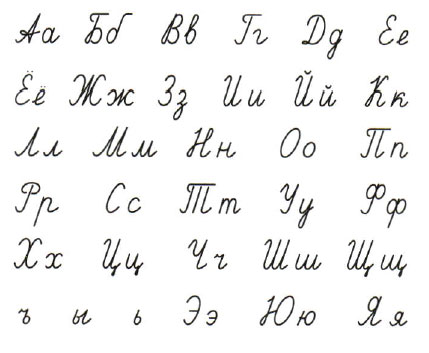 Аа Бб Вв Гг Дд Ее
Ёё Жж Зз Ии Йй Кк
Лл Мм Нн Оо Пп
Рр Сс Тт Уу Фф
Хх Цц Чч Шш Щщ
ъ ы ь Ээ Юю Яя